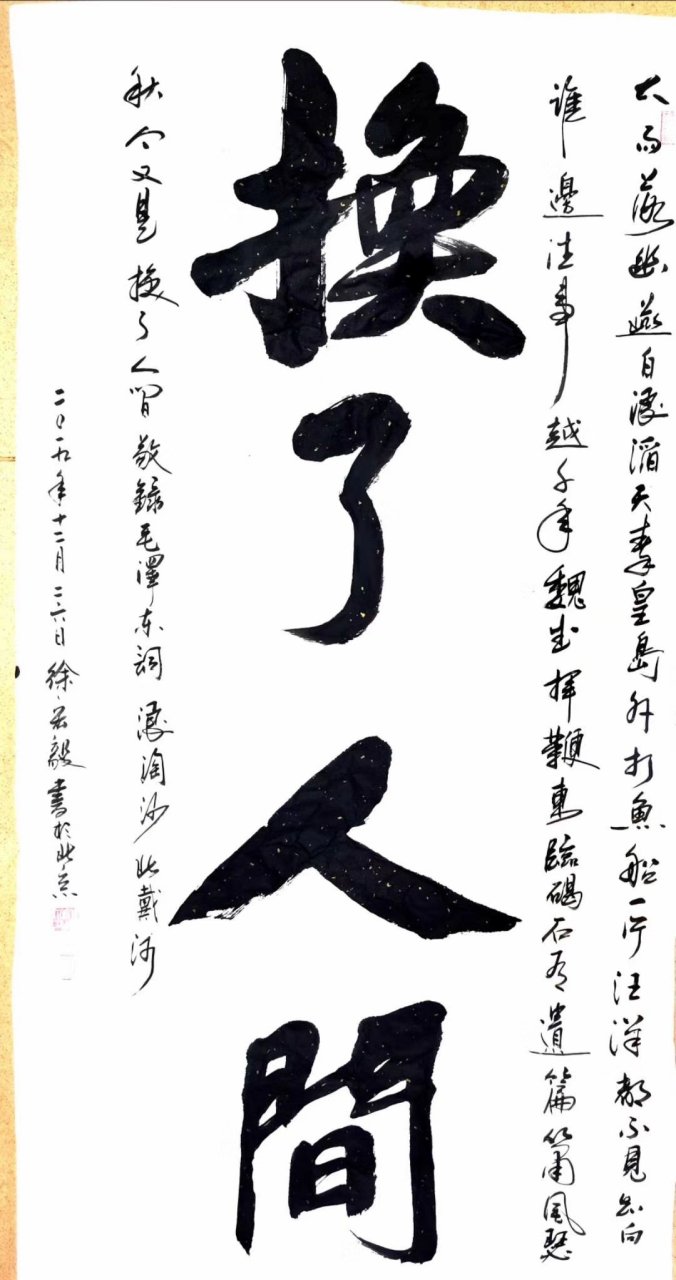 大雨落幽燕白浪滔天秦皇島外打魚船一片汪洋都不見知向
誰邊往事越千年魏武揮鞭東臨碣石有遺篇簫風瑟
換了人間
秋今又是換了人間敬錄毛澤東詞浪淘沙北戴河
二〇一九年十二月二六日徐毅書於北京